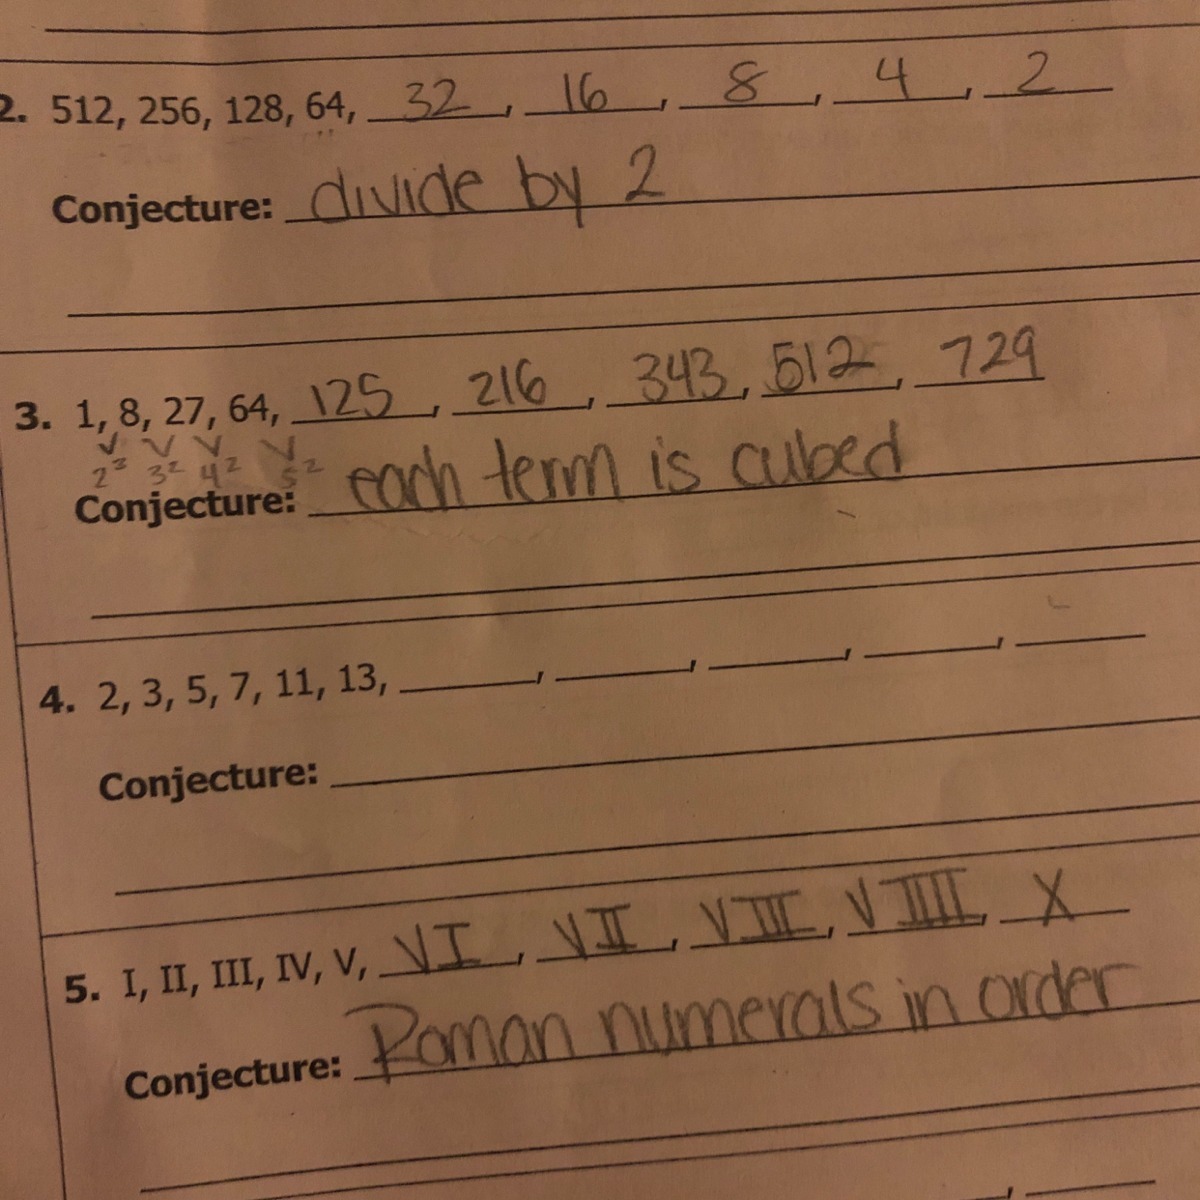 2. 512, 256, 128, 64, 32, 16, 8, 4, 2
Conjecture: divide by 2
3. 1, 8, 27, 64, 125, 216, 343, 512, 729
2³ 3² 4² 5²
Conjecture: each term is cubed
4. 2, 3, 5, 7, 11, 13, ______, ______, ______, ______, ______
Conjecture:
5. I, II, III, IV, V, VI, VII, VIII, VIIII, X
Conjecture: Roman numerals in order